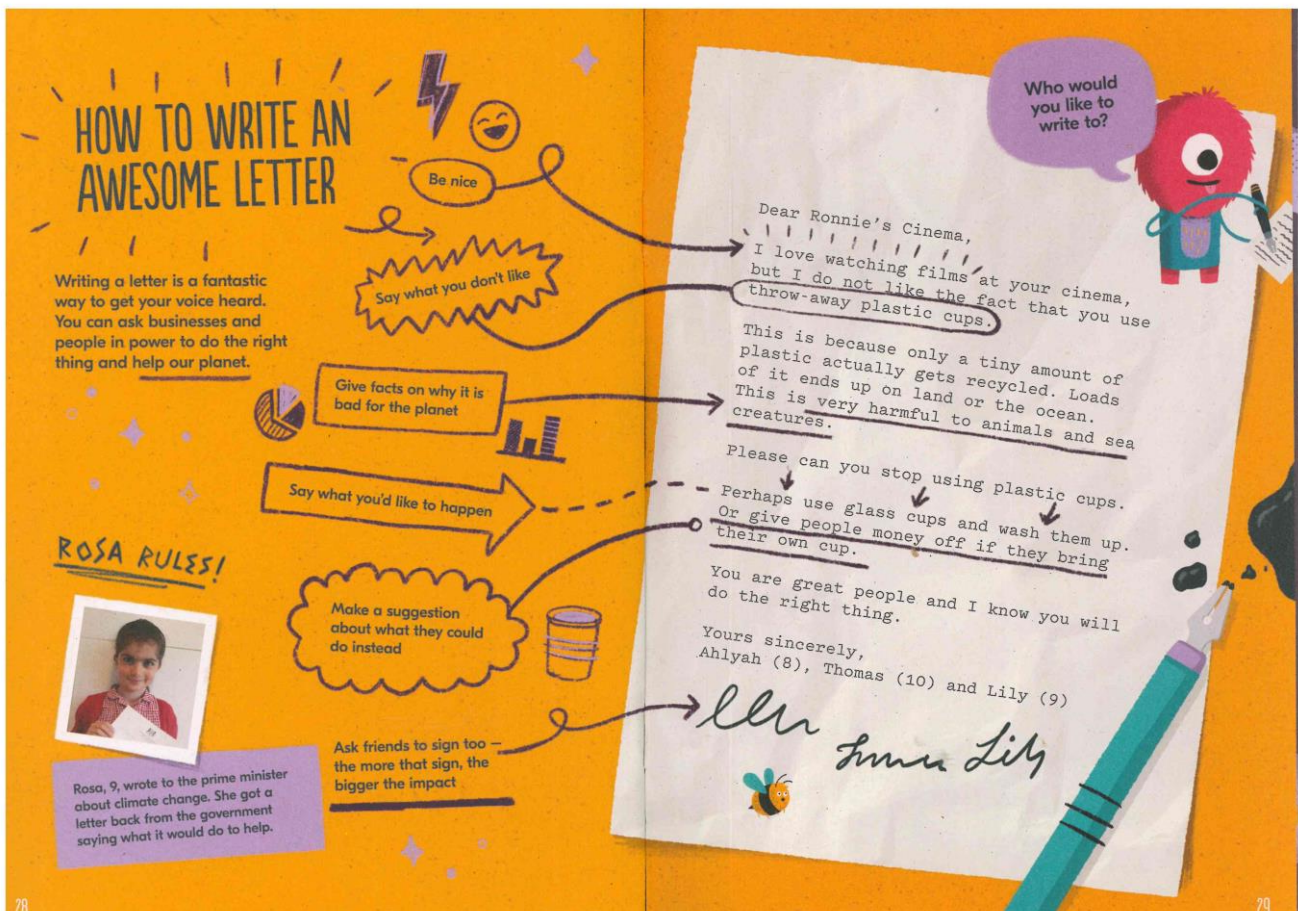 HOW TO WRITE AN
AWESOME LETTER
Writing a letter is a fantastic
way to get your voice heard.
You can ask businesses and
people in power to do the right
thing and help our planet.
Be nice
Say what you don't like
Give facts on why it is
bad for the planet
Say what you'd like to happen
Make a suggestion
about what they could
do instead
Ask friends to sign too –
the more that sign, the
bigger the impact
ROSA RULES!
Rosa, 9, wrote to the prime minister
about climate change. She got a
letter back from the government
saying what it would do to help.
28
Who would
you like to
write to?
Dear Ronnie's Cinema,
I love watching films at your cinema,
but I do not like the fact that you use
throw-away plastic cups.
This is because only a tiny amount of
plastic actually gets recycled. Loads
of it ends up on land or the ocean.
This is very harmful to animals and sea
creatures.
Please can you stop using plastic cups.
Perhaps use glass cups and wash them up.
Or give people money off if they bring
their own cup.
You are great people and I know you will
do the right thing.
Yours sincerely,
Ahlyah (8), Thomas (10) and Lily (9)
Lily
29